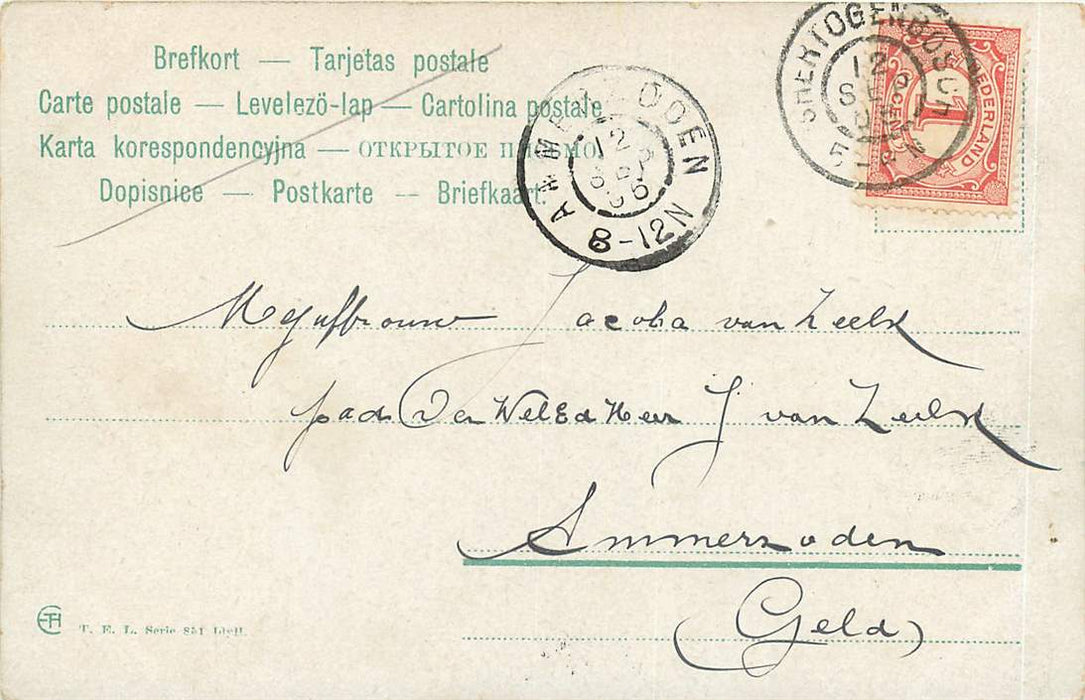 Brefkort — Tarjetas postale
Carte postale — Levelezö-lap — Cartolina postale
Karta korespondencyjna — ОТКРЫТОЕ ПИСЬМО
Dopisnice — Postkarte — Briefkaart.
AMMERZODEN
12 SEP 06
8-12N
SHERTOGENBOSCH
12 SEP
NEDERLAND
1 CENT
Mejufbrouw Jacoba van Zeelst
p ads Den WelEdHeer J van Zeelst
Ammerzoden
(Geld)
T. E. L. Serie 851